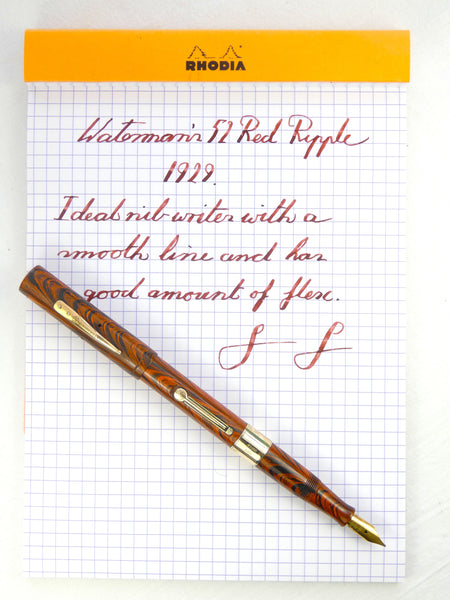 RHODIA
Waterman's 52 Red Ripple
1929.
Ideal nib writes with a
smooth line and has
good amount of flex.